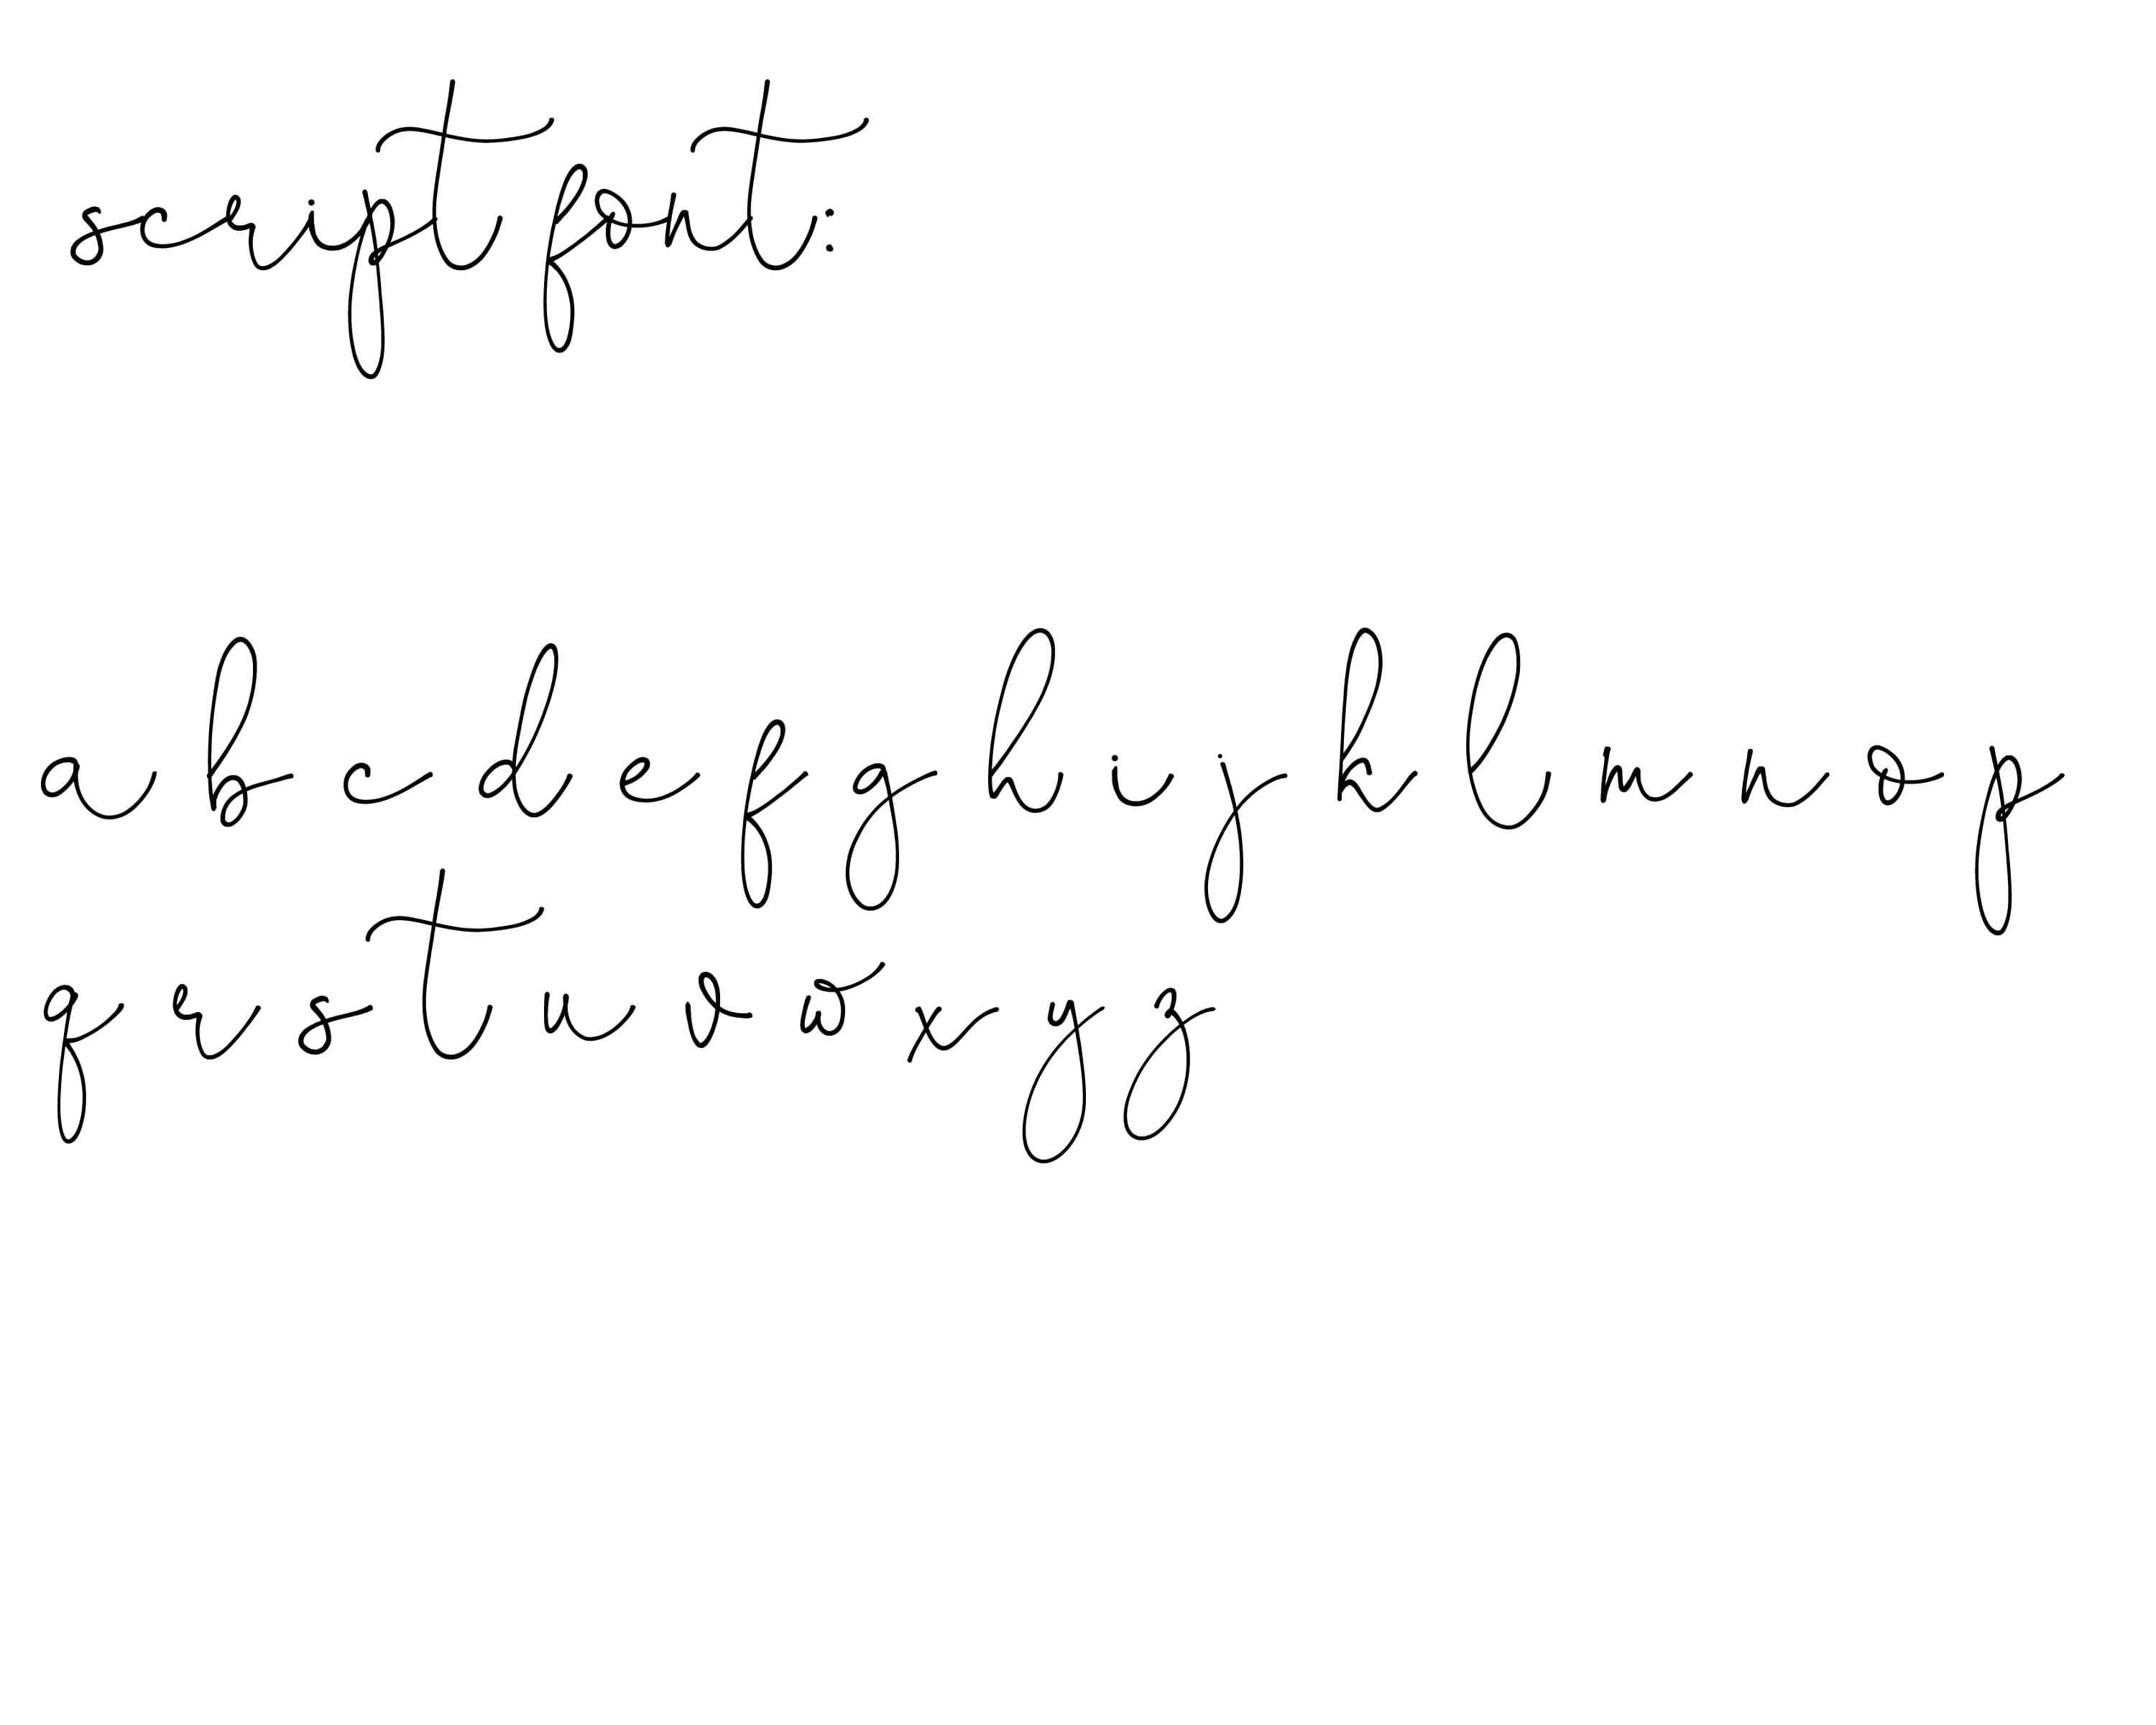 script font:
a b c d e f g h i j k l m n o p
q r s t u v w x y z